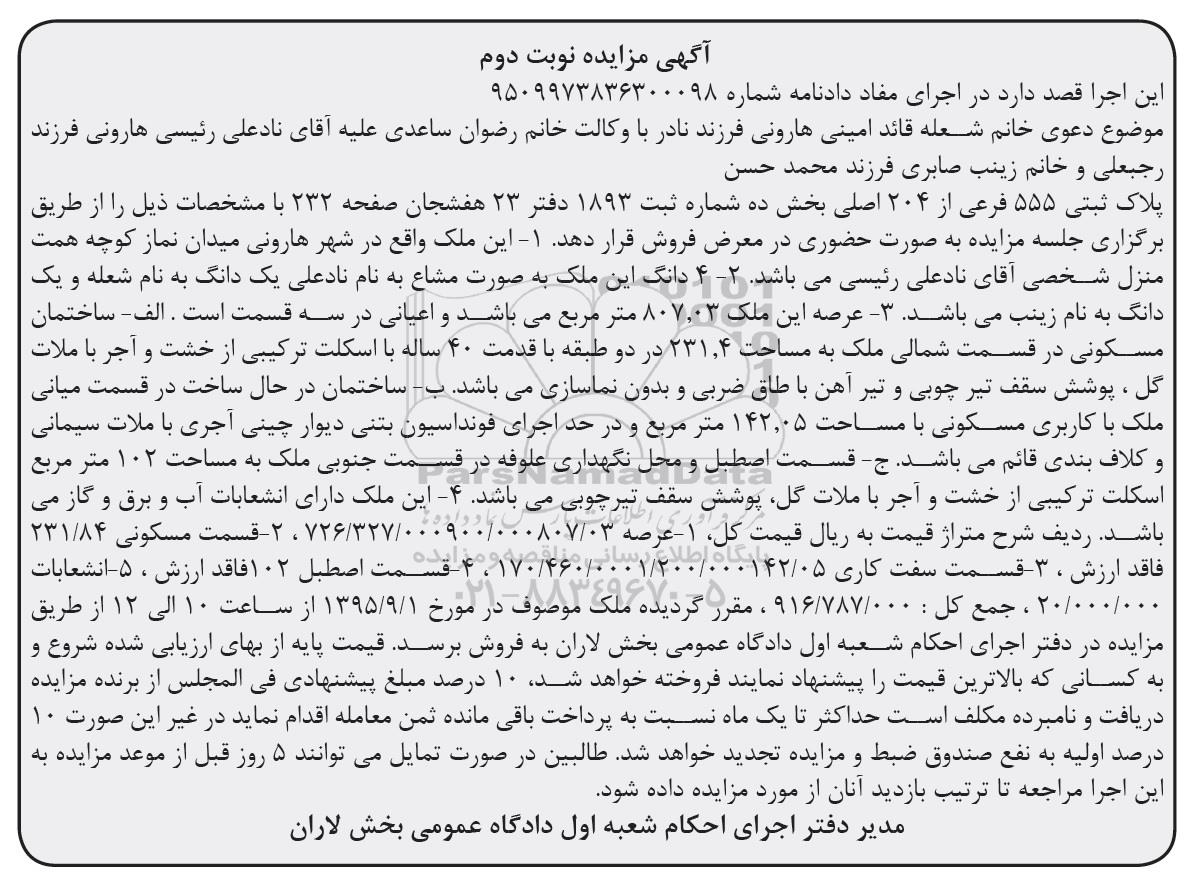 آگهی مزایده نوبت دوم
این اجرا قصد دارد در اجرای مفاد دادنامه شماره ۹۵۰۹۹۷۳۸۳۶۳۰۰۰۹۸
موضوع دعوی خانم شعله قائد امینی هارونی فرزند نادر با وکالت خانم رضوان ساعدی علیه آقای نادعلی رئیسی هارونی فرزند
رجبعلی و خانم زینب صابری فرزند محمد حسن
پلاک ثبتی ۵۵۵ فرعی از ۲۰۴ اصلی بخش ده شماره ثبت ۱۸۹۳ دفتر ۲۳ هفشجان صفحه ۲۳۲ با مشخصات ذیل را از طریق
برگزاری جلسه مزایده به صورت حضوری در معرض فروش قرار دهد. ۱- این ملک واقع در شهر هارونی میدان نماز کوچه همت
منزل شخصی آقای نادعلی رئیسی می باشد. ۲- ۴ دانگ این ملک به صورت مشاع به نام نادعلی یک دانگ به نام شعله و یک
دانگ به نام زینب می باشد. ۳- عرصه این ملک ۸۰۷,۰۳ متر مربع می باشد و اعیانی در سه قسمت است . الف- ساختمان
مسکونی در قسمت شمالی ملک به مساحت ۲۳۱,۴ در دو طبقه با قدمت ۴۰ ساله با اسکلت ترکیبی از خشت و آجر با ملات
گل ، پوشش سقف تیر چوبی و تیر آهن با طاق ضربی و بدون نماسازی می باشد. ب- ساختمان در حال ساخت در قسمت میانی
ملک با کاربری مسکونی با مساحت ۱۴۲,۰۵ متر مربع و در حد اجرای فونداسیون بتنی دیوار چینی آجری با ملات سیمانی
و کلاف بندی قائم می باشد. ج- قسمت اصطبل و محل نگهداری علوفه در قسمت جنوبی ملک به مساحت ۱۰۲ متر مربع
اسکلت ترکیبی از خشت و آجر با ملات گل، پوشش سقف تیرچوبی می باشد. ۴- این ملک دارای انشعابات آب و برق و گاز می
باشد. ردیف شرح متراژ قیمت به ریال قیمت کل، ۱-عرصه ۷۲۶/۳۲۷/۰۰۰۹۰۰/۰۰۰۸۰۷/۰۳ ، ۲-قسمت مسکونی ۲۳۱/۸۴
فاقد ارزش ، ۳-قسمت سفت کاری ۱۷۰/۴۶۰/۰۰۰۱/۲۰۰/۰۰۰۱۴۲/۰۵ ، ۴-قسمت اصطبل ۱۰۲فاقد ارزش ، ۵-انشعابات
۲۰/۰۰۰/۰۰۰ ، جمع کل : ۹۱۶/۷۸۷/۰۰۰ ، مقرر گردیده ملک موصوف در مورخ ۱۳۹۵/۹/۱ از ساعت ۱۰ الی ۱۲ از طریق
مزایده در دفتر اجرای احکام شعبه اول دادگاه عمومی بخش لاران به فروش برسد. قیمت پایه از بهای ارزیابی شده شروع و
به کسانی که بالاترین قیمت را پیشنهاد نمایند فروخته خواهد شد، ۱۰ درصد مبلغ پیشنهادی فی المجلس از برنده مزایده
دریافت و نامبرده مکلف است حداکثر تا یک ماه نسبت به پرداخت باقی مانده ثمن معامله اقدام نماید در غیر این صورت ۱۰
درصد اولیه به نفع صندوق ضبط و مزایده تجدید خواهد شد. طالبین در صورت تمایل می توانند ۵ روز قبل از موعد مزایده به
این اجرا مراجعه تا ترتیب بازدید آنان از مورد مزایده داده شود.
مدیر دفتر اجرای احکام شعبه اول دادگاه عمومی بخش لاران
ParsNamadData
پایگاه اطلاع رسانی مناقصه و مزایده
۰۲۱-۸۸۳۴۹۶۷۰-۵